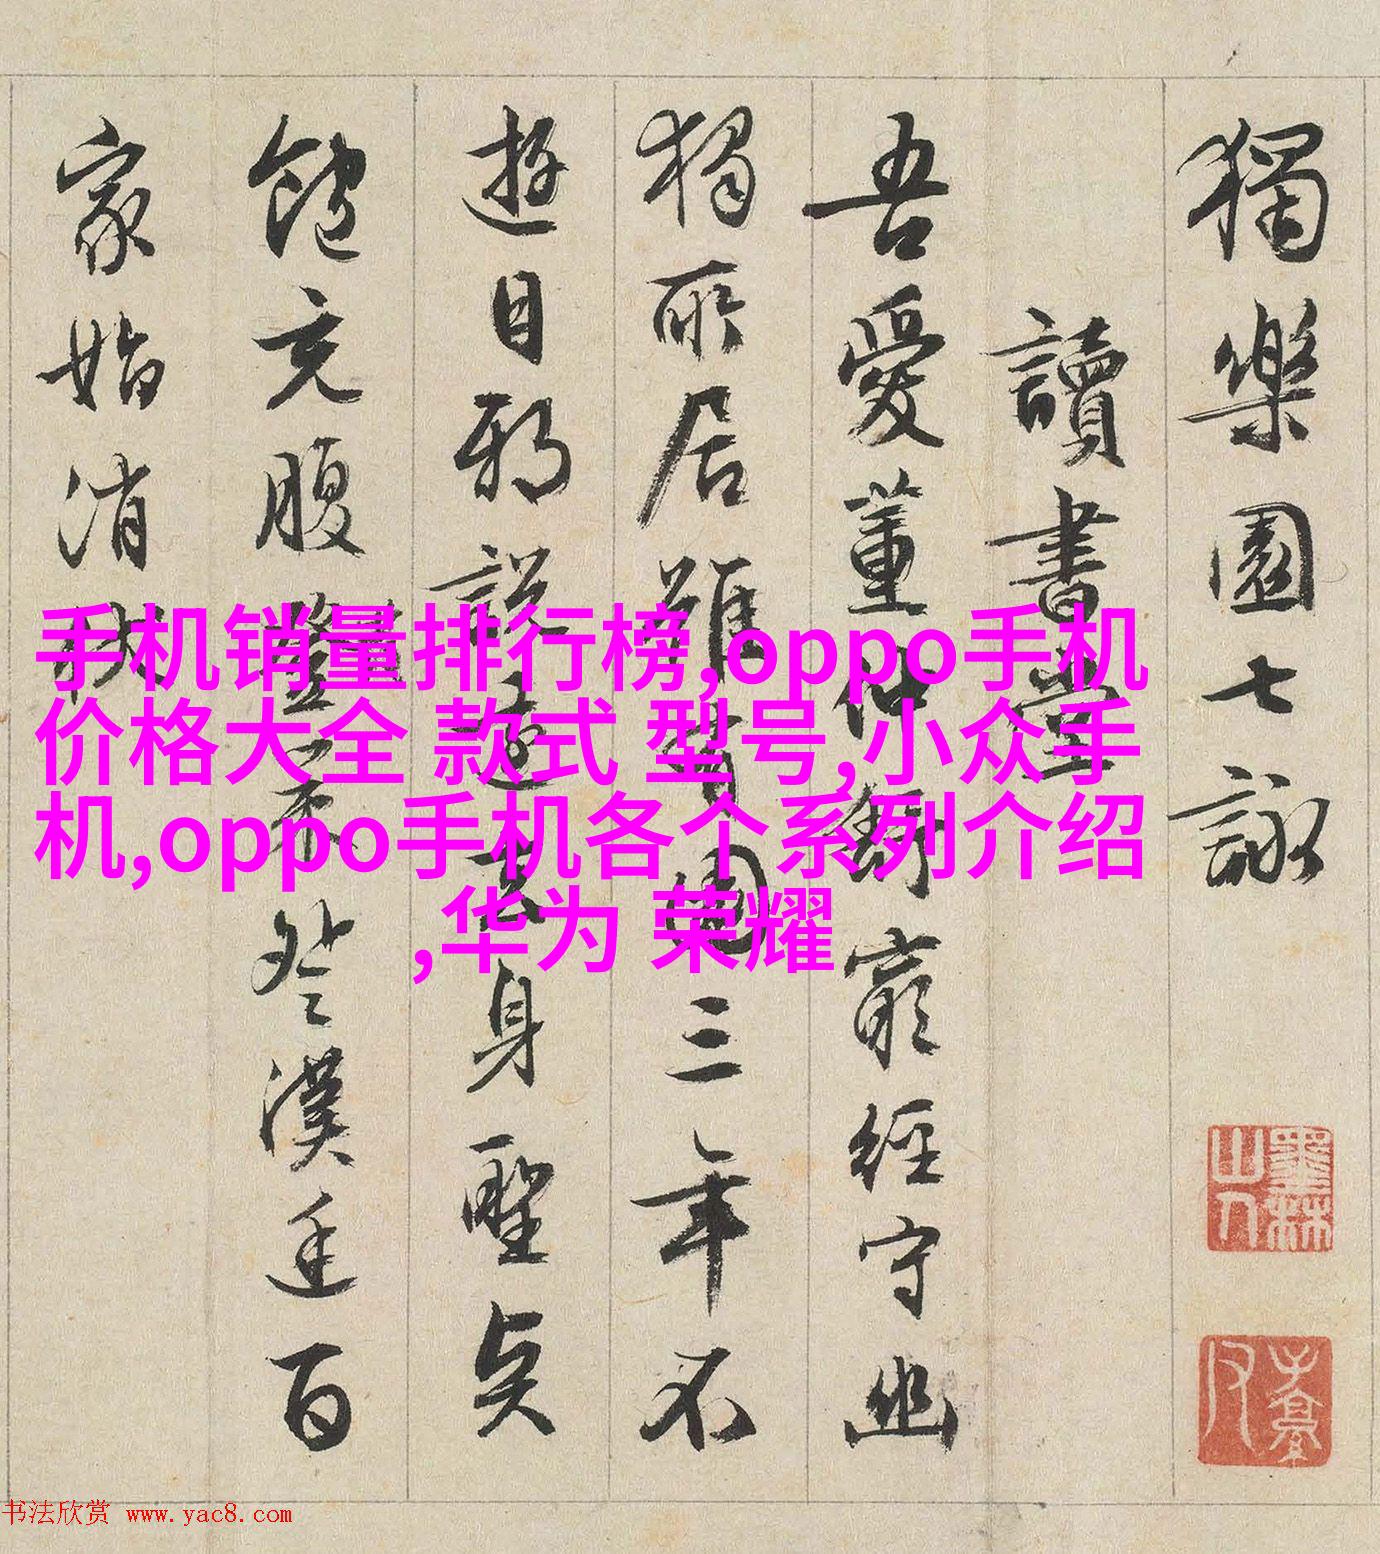 獨樂園七詠
讀書堂
吾愛董仲舒窮經守幽
獨所居雖有園三年不
遊目邪說遠去身聖言
飽充腹發策登漢廷百
家始消伏
手机销量排行榜,oppo手机
价格大全 款式 型号,小众手
机,oppo手机各个系列介绍
,华为 荣耀
墨林山人
书法欣赏 www.yac8.com